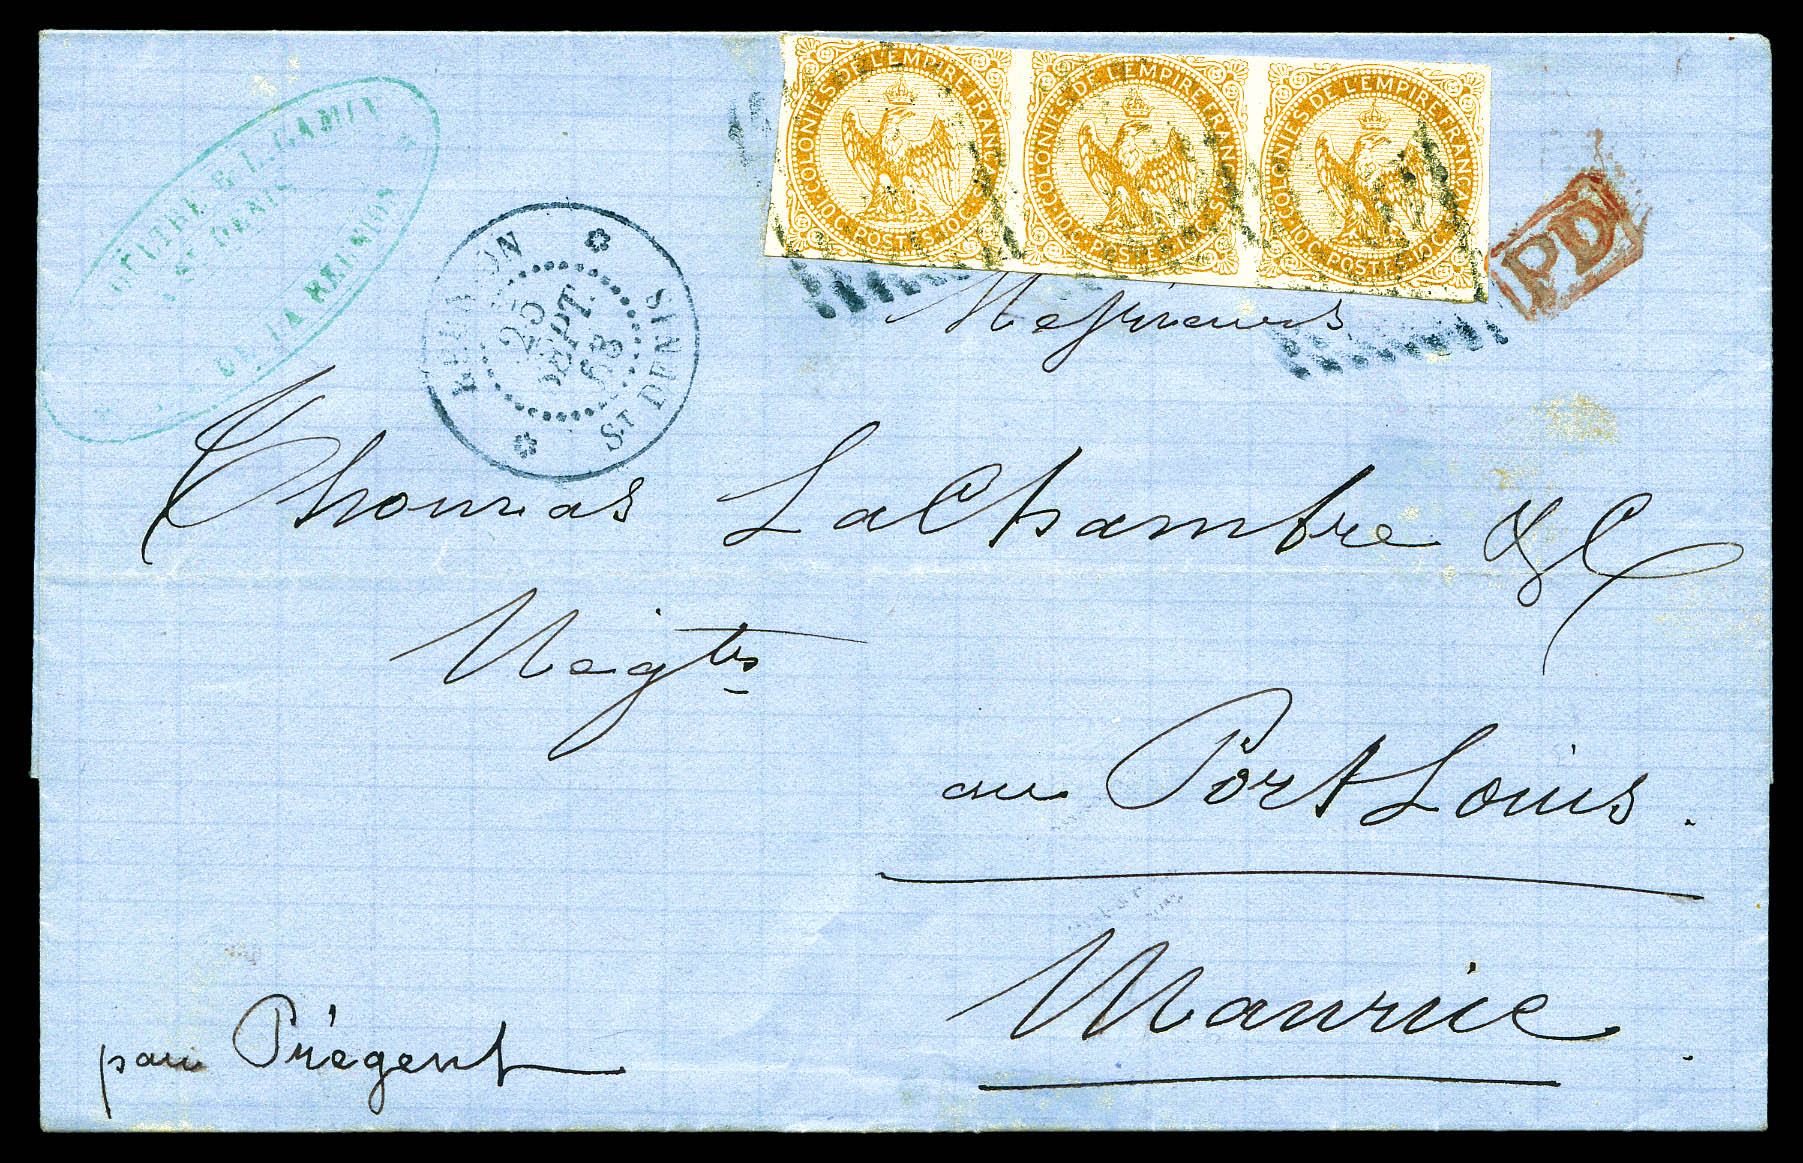 COLONIES DE L'EMPIRE FRANÇAIS
10 C. POSTES. 10 C.
COLONIES DE L'EMPIRE FRANÇAIS
10 C. POSTES. 10 C.
COLONIES DE L'EMPIRE FRANÇAIS
10 C. POSTES. 10 C.
& L. CAMIN
ST DENIS
DE LA RÉUNION
REUNION
25
SEPT.
68
ST DENIS
PD
Messieurs
Thomas LaChambre & C
Negts
au Port Louis.
Maurice.
par Prégent